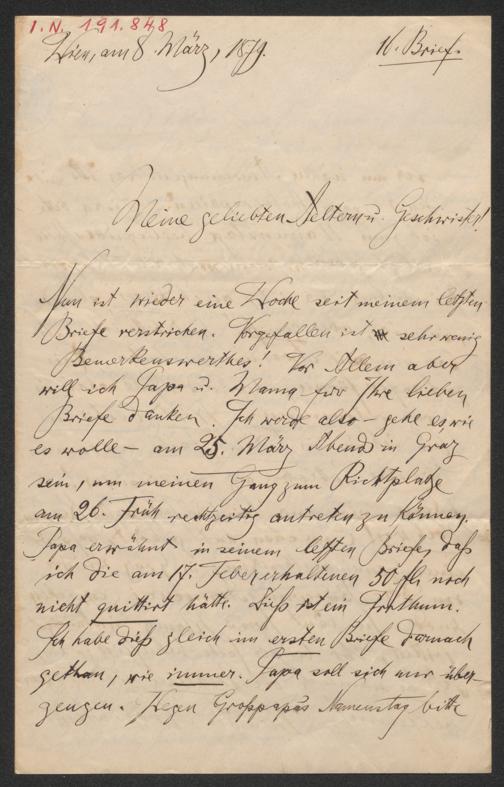 I.N. 191.848
Wien, am 8. März, 1879.
16. Brief.
Meine geliebten Aeltern u. Geschwister!
Nun ist wieder eine Woche seit meinem letzten
Briefe verstrichen. Vorgefallen ist sehr wenig
Bemerkenswerthes! Vor Allem aber
will ich Papa u. Mama für Ihre lieben
Briefe danken. Ich werde also – gehe es, wie
es wolle – am 25. März Abends in Graz
sein, um meinen Gang zum Richtplatze
am 26. Früh rechtzeitig antreten zu können.
Papa erwähnt in seinem letzten Briefe, daß
ich die am 17. Feber erhaltenen 50 fl. noch
nicht quittirt hätte. Dieß ist ein Irrthum.
Ich habe dieß gleich im ersten Briefe darnach
gethan, wie immer. Papa soll sich nur über-
zeugen. Wegen Großpapas Namenstag bitte